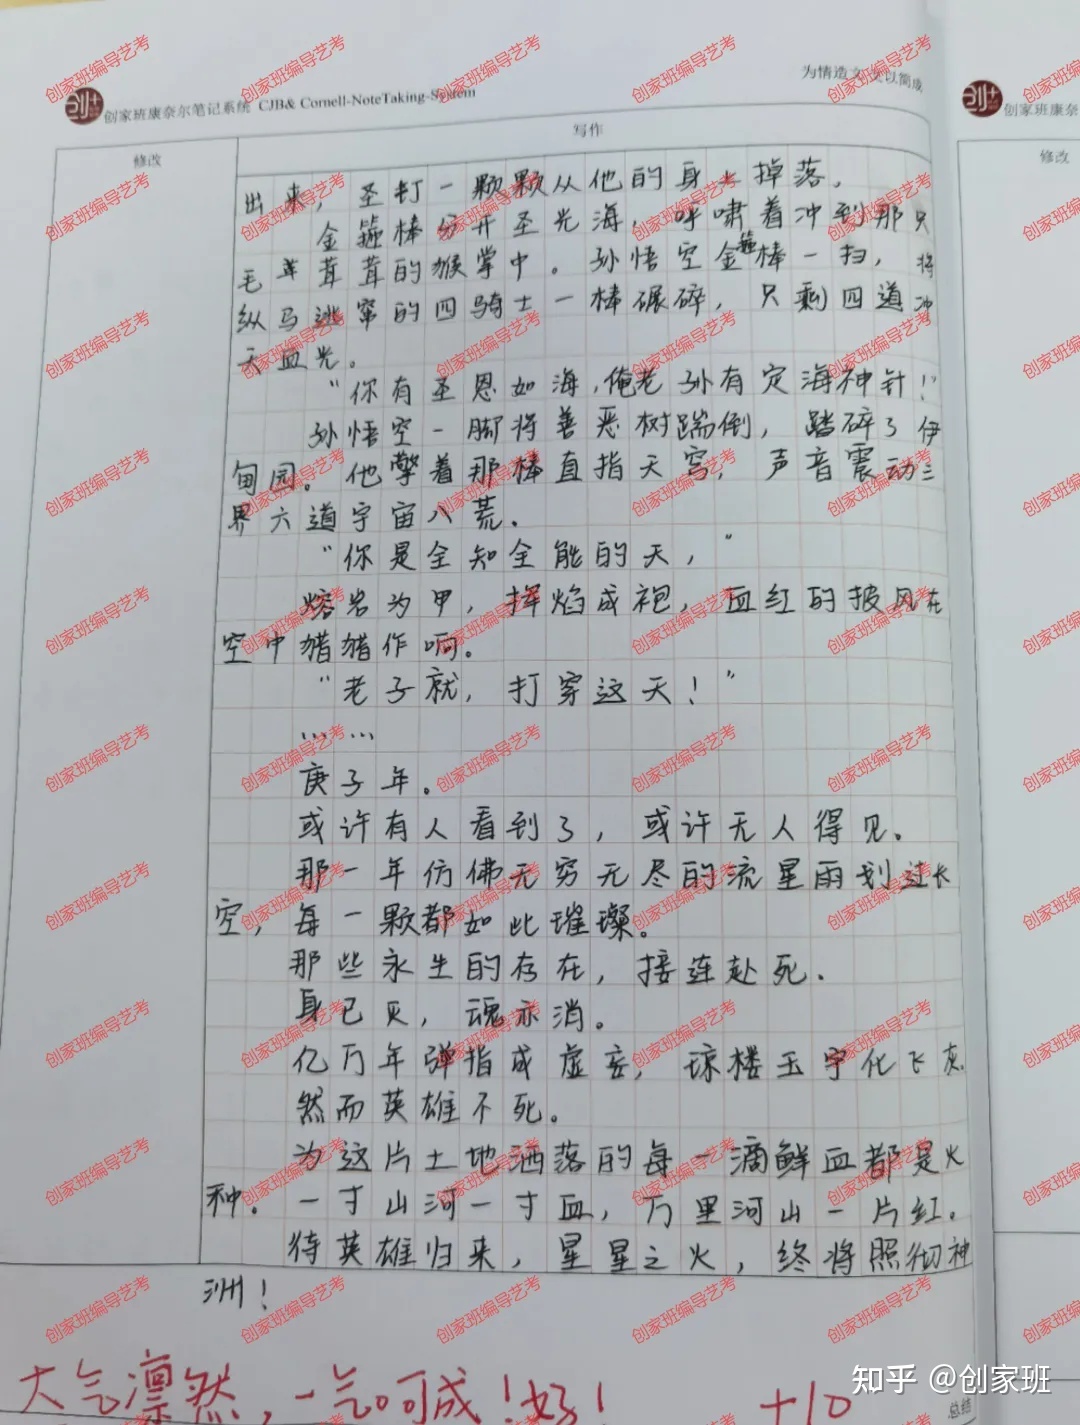 为情造文 文以简成
创家班康奈尔笔记系统 CJB& Cornell-NoteTaking-System
创家班康奈
修改
写作
修改
出来，圣钉一颗颗从他的身上掉落。
金箍棒分开圣光海，呼啸着冲到那只
毛茸茸茸的猴掌中。孙悟空金箍棒一扫，将
纵马逃窜的四骑士一棒碾碎，只剩四道冲
天血光。
“你有圣恩如海，俺老孙有定海神针！”
孙悟空一脚将善恶树踹倒，踏碎了伊
甸园。他擎着那棒直指天穹，声音震动三
界六道宇宙八荒。
“你是全知全能的天，”
熔岩为甲，挥焰成袍，血红的披风在
空中猎猎作响。
“老子就，打穿这天！”
……
庚子年。
或许有人看到了，或许无人得见。
那一年仿佛无穷无尽的流星雨划过长
空，每一颗都如此璀璨。
那些永生的存在，接连赴死.
身已灭，魂亦消。
亿万年弹指成虚妄，琼楼玉宇化飞灰
然而英雄不死。
为这片土地洒落的每一滴鲜血都是火
种。一寸山河一寸血，万里河山一片红。
待英雄归来，星星之火，终将照彻神
洲！
大气凛然，一气呵成！好！ +10
总结
知乎 @创家班
创家班编导艺考